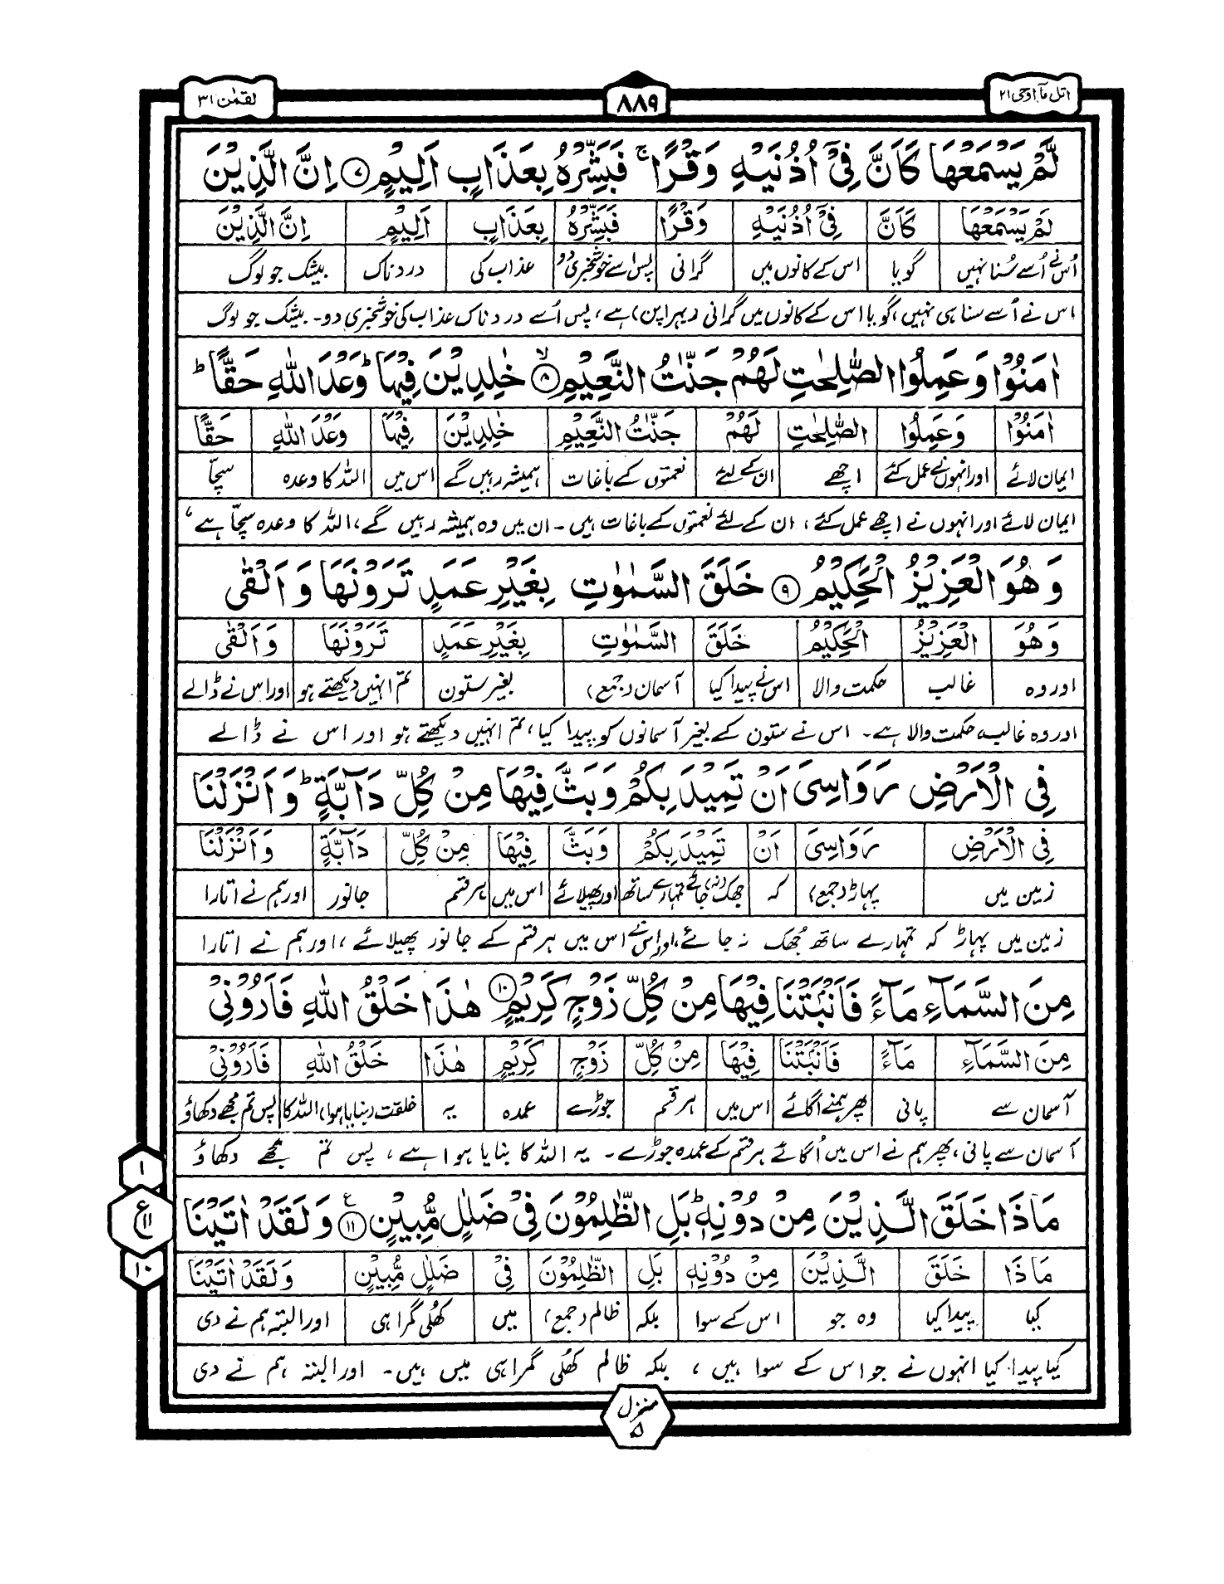 اتل مآ اوحی ۲۱
۸۸۹
لقمٰن ۳۱
لَّمْ یَسْمَعْهَا كَاَنَّ فِیْۤ اُذُنَیْهِ وَقْرًا ۚ فَبَشِّرْهُ بِعَذَابٍ اَلِیْمٍ ۷ اِنَّ الَّذِیْنَ
لَمْ یَسْمَعْهَا كَاَنَّ فِیْۤ اُذُنَیْهِ وَقْرًا فَبَشِّرْهُ بِعَذَابٍ اَلِیْمٍ اِنَّ الَّذِیْنَ
اُس نے اُسے سُنا نہیں گویا اس کے کانوں میں گرانی پس اسے خوشخبری دو عذاب کی دردناک بیشک جو لوگ
اس نے اُسے سنا ہی نہیں، گویا اس کے کانوں میں گرانی (بہراپن) ہے، پس اُسے دردناک عذاب کی خوشخبری دو۔ بیشک جو لوگ
اٰمَنُوْا وَعَمِلُوا الصّٰلِحٰتِ لَهُمْ جَنّٰتُ النَّعِیْمِ ۸ۙ خٰلِدِیْنَ فِیْهَا ؕ وَعْدَ اللّٰهِ حَقًّا ؕ
اٰمَنُوْا وَعَمِلُوا الصّٰلِحٰتِ لَهُمْ جَنّٰتُ النَّعِیْمِ خٰلِدِیْنَ فِیْهَا وَعْدَ اللّٰهِ حَقًّا
ایمان لائے اور انہوں نے عمل کئے اچھے ان کے لئے نعمتوں کے باغات ہمیشہ رہیں گے اس میں اللہ کا وعدہ سچّا
ایمان لائے اور انہوں نے اچھے عمل کئے، ان کے لئے نعمتوں کے باغات ہیں۔ ان میں وہ ہمیشہ رہیں گے، اللہ کا وعدہ سچّا ہے،
وَهُوَ الْعَزِیْزُ الْحَكِیْمُ ۹ خَلَقَ السَّمٰوٰتِ بِغَیْرِ عَمَدٍ تَرَوْنَهَا وَاَلْقٰی
وَهُوَ الْعَزِیْزُ الْحَكِیْمُ خَلَقَ السَّمٰوٰتِ بِغَیْرِ عَمَدٍ تَرَوْنَهَا وَاَلْقٰی
اور وہ غالب حکمت والا اس نے پیدا کیا آسمان (جمع) بغیر ستون تم انہیں دیکھتے ہو اور اس نے ڈالے
اور وہ غالب حکمت والا ہے۔ اس نے ستون کے بغیر آسمانوں کو پیدا کیا، تم انہیں دیکھتے ہو اور اس نے ڈالے
فِی الْاَرْضِ رَوَاسِیَ اَنْ تَمِیْدَ بِكُمْ وَبَثَّ فِیْهَا مِنْ كُلِّ دَآبَّةٍ ؕ وَاَنْزَلْنَا
فِی الْاَرْضِ رَوَاسِیَ اَنْ تَمِیْدَ بِكُمْ وَبَثَّ فِیْهَا مِنْ كُلِّ دَآبَّةٍ وَاَنْزَلْنَا
زمین میں پہاڑ (جمع) کہ جھک (نہ) جائے تمہارے ساتھ اور پھیلائے اس میں ہر قسم جانور اور ہم نے اتارا
زمین میں پہاڑ کہ تمہارے ساتھ جُھک نہ جائے، اور اس نے اس میں ہر قسم کے جانور پھیلائے، اور ہم نے اتارا
مِنَ السَّمَآءِ مَآءً فَاَنْۢبَتْنَا فِیْهَا مِنْ كُلِّ زَوْجٍ كَرِیْمٍ ۱۰ هٰذَا خَلْقُ اللّٰهِ فَاَرُوْنِیْ
مِنَ السَّمَآءِ مَآءً فَاَنْۢبَتْنَا فِیْهَا مِنْ كُلِّ زَوْجٍ كَرِیْمٍ هٰذَا خَلْقُ اللّٰهِ فَاَرُوْنِیْ
آسمان سے پانی پھر ہم نے اگائے اس میں ہر قسم جوڑے عمدہ یہ خلقت (بنایا ہوا) اللہ کا پس تم مجھے دکھاؤ
آسمان سے پانی، پھر ہم نے اس میں اُگائے ہر قسم کے عمدہ جوڑے۔ یہ اللہ کا بنایا ہوا ہے، پس تم مجھے دکھاؤ
مَاذَا خَلَقَ الَّذِیْنَ مِنْ دُوْنِهٖ ؕ بَلِ الظّٰلِمُوْنَ فِیْ ضَلٰلٍ مُّبِیْنٍ ۱۱ ع وَلَقَدْ اٰتَیْنَا
مَاذَا خَلَقَ الَّذِیْنَ مِنْ دُوْنِهٖ بَلِ الظّٰلِمُوْنَ فِیْ ضَلٰلٍ مُّبِیْنٍ وَلَقَدْ اٰتَیْنَا
کیا پیدا کیا وہ جو اس کے سوا بلکہ ظالم (جمع) میں کھلی گمراہی اور البتہ ہم نے دی
کیا پیدا کیا انہوں نے جو اس کے سوا ہیں، بلکہ ظالم کھلی گمراہی میں ہیں۔ اور البتہ ہم نے دی
۱
ع ۱۱
۱۰
منزل ۵